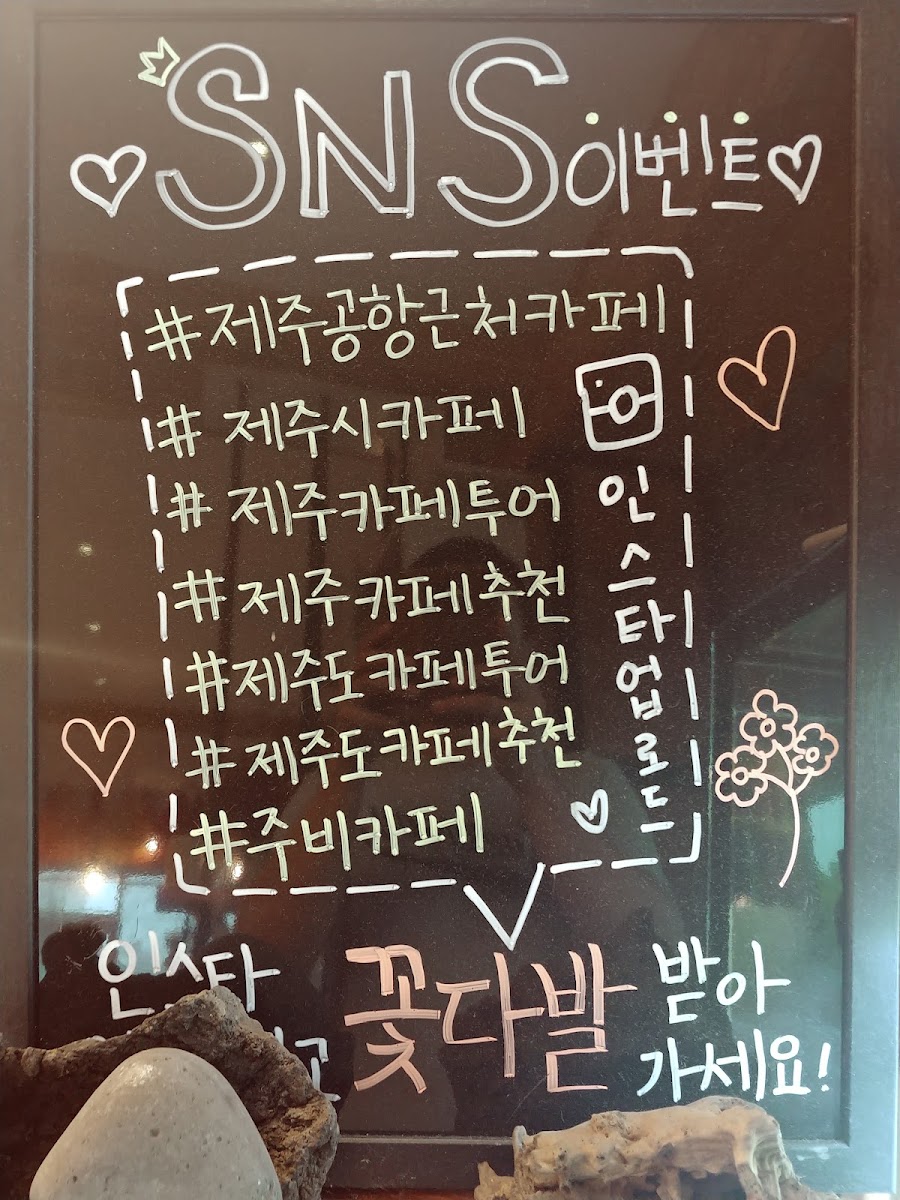 SNS 이벤트
#제주공항근처카페
# 제주시카페
# 제주카페투어
# 제주카페추천
#제주도카페투어
# 제주도카페추천
#주비카페
인스타업로드
인스타
고
꽃다발
받아
가세요!